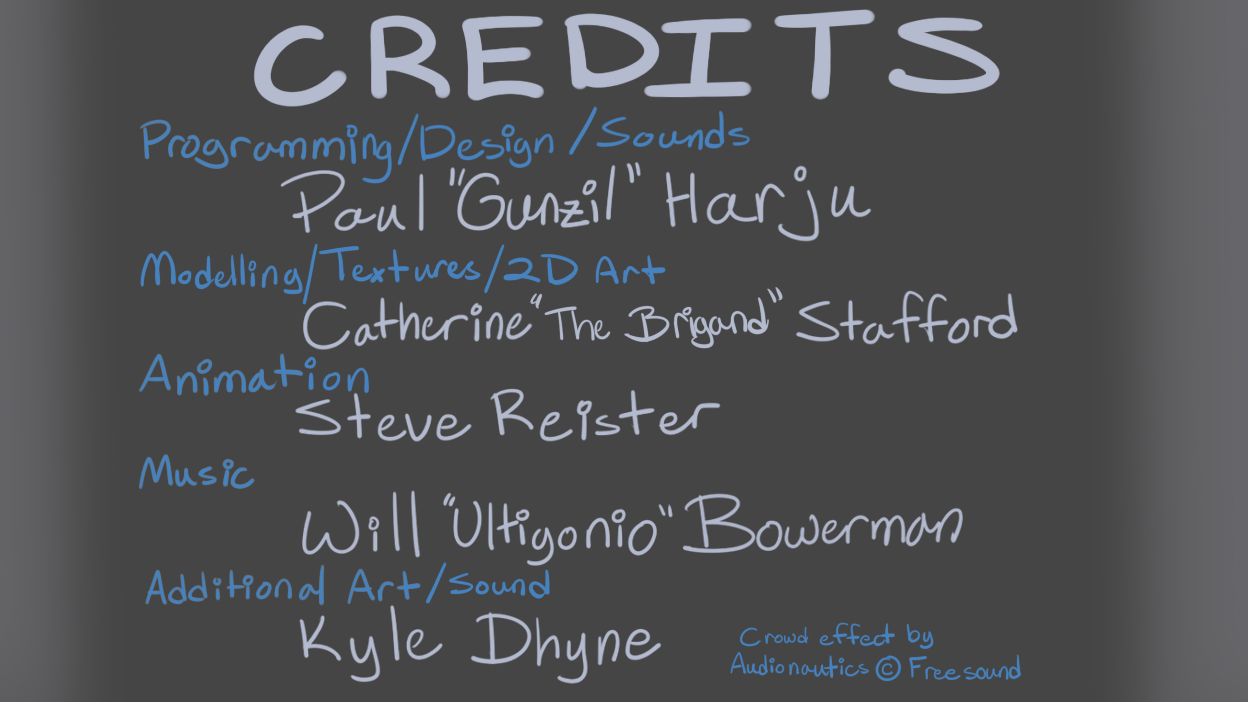 CREDITS
Programming/Design/Sounds
Paul "Gunzil" Harju
Modelling/Textures/2D Art
Catherine "The Brigand" Stafford
Animation
Steve Reister
Music
Will "Ultigonio" Bowerman
Additional Art/Sound
Kyle Dhyne
Crowd effect by
Audionautics © Freesound